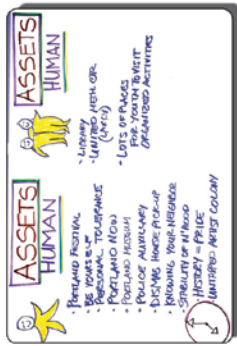 ASSETS
HUMAN
· PORTLAND FESTIVAL
· BE YOURSELF
· PERSONAL TOLERANCE
· PORTLAND NOW
· PORTLAND MUSEUM
· POLICE AUXILLARY
· DISMAS HOUSE PICK-UP
· KNOWING YOUR NEIGHBOR
· STABILITY OF N'HOOD
HISTORY = PRIDE
UNTAPPED ARTIST COLONY
ASSETS
HUMAN
· LIBRARY
· UNITED
· LOTS OF PLACES
FOR YOUTH TO VISIT
ORGANIZED ACTIVITIES